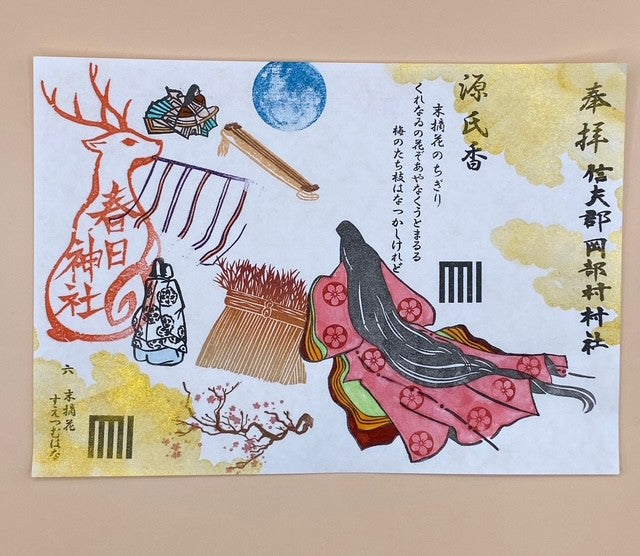 奉拝
信夫郡岡部村村社
源氏香
末摘花のちぎり
くれなゐの花ぞあやなくうとまるる
梅のたち枝はなつかしけれど
春日神社
六 末摘花
すえつむはな